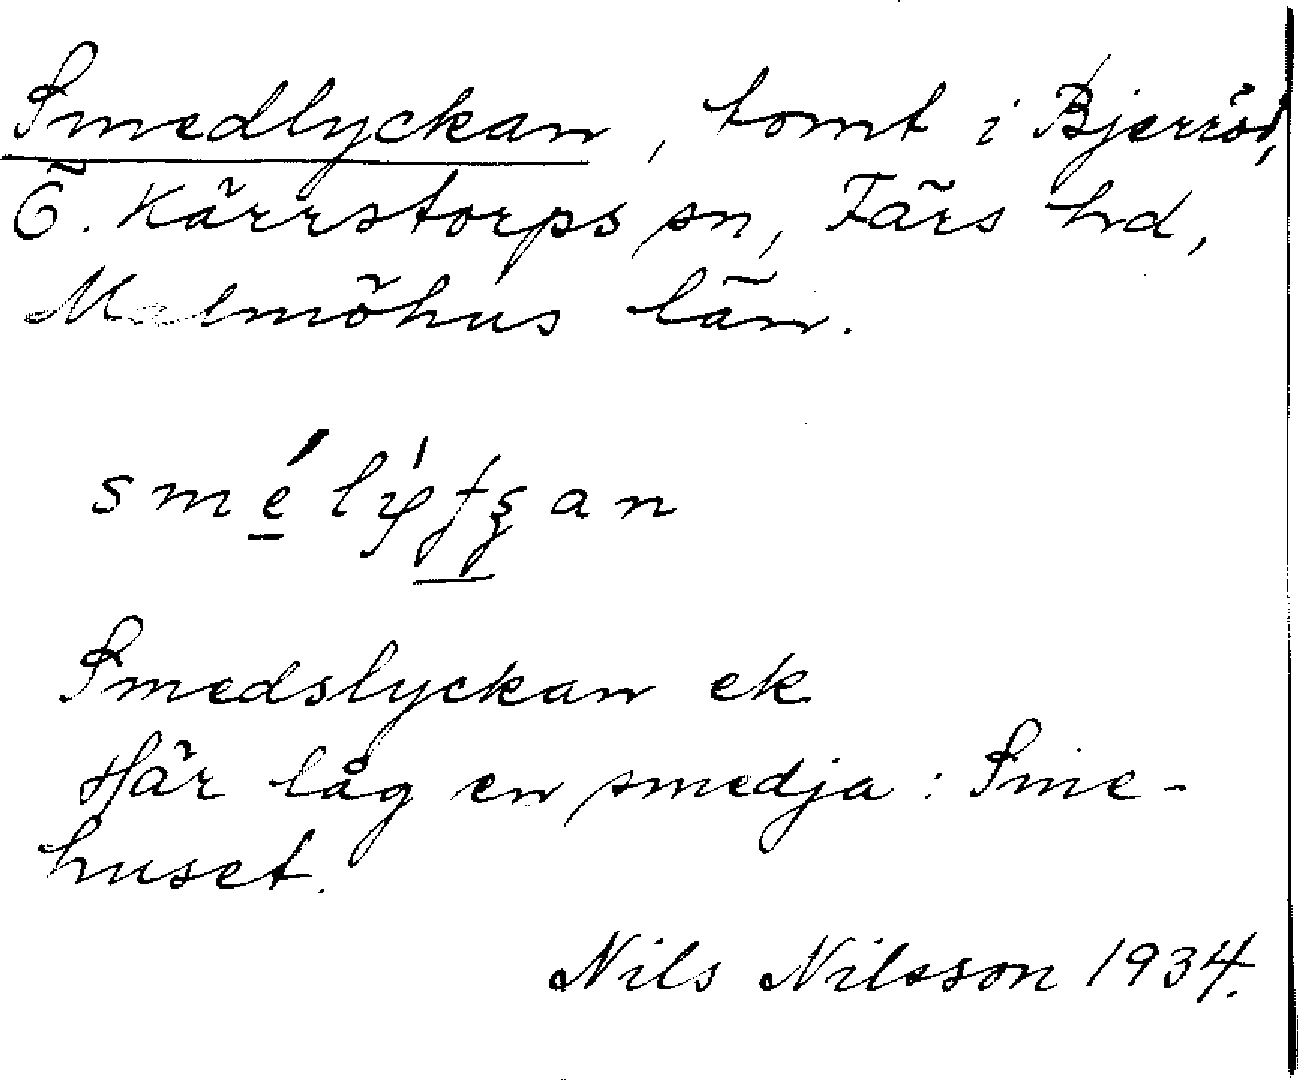 Smedlyckan, tomt i Bjerröd,
Ö. Kärrstorps sn, Färs hd,
Malmöhus län.
Smedslyckan ek
Här låg en smedja: Sme-
huset.
Nils Nilsson 1934.